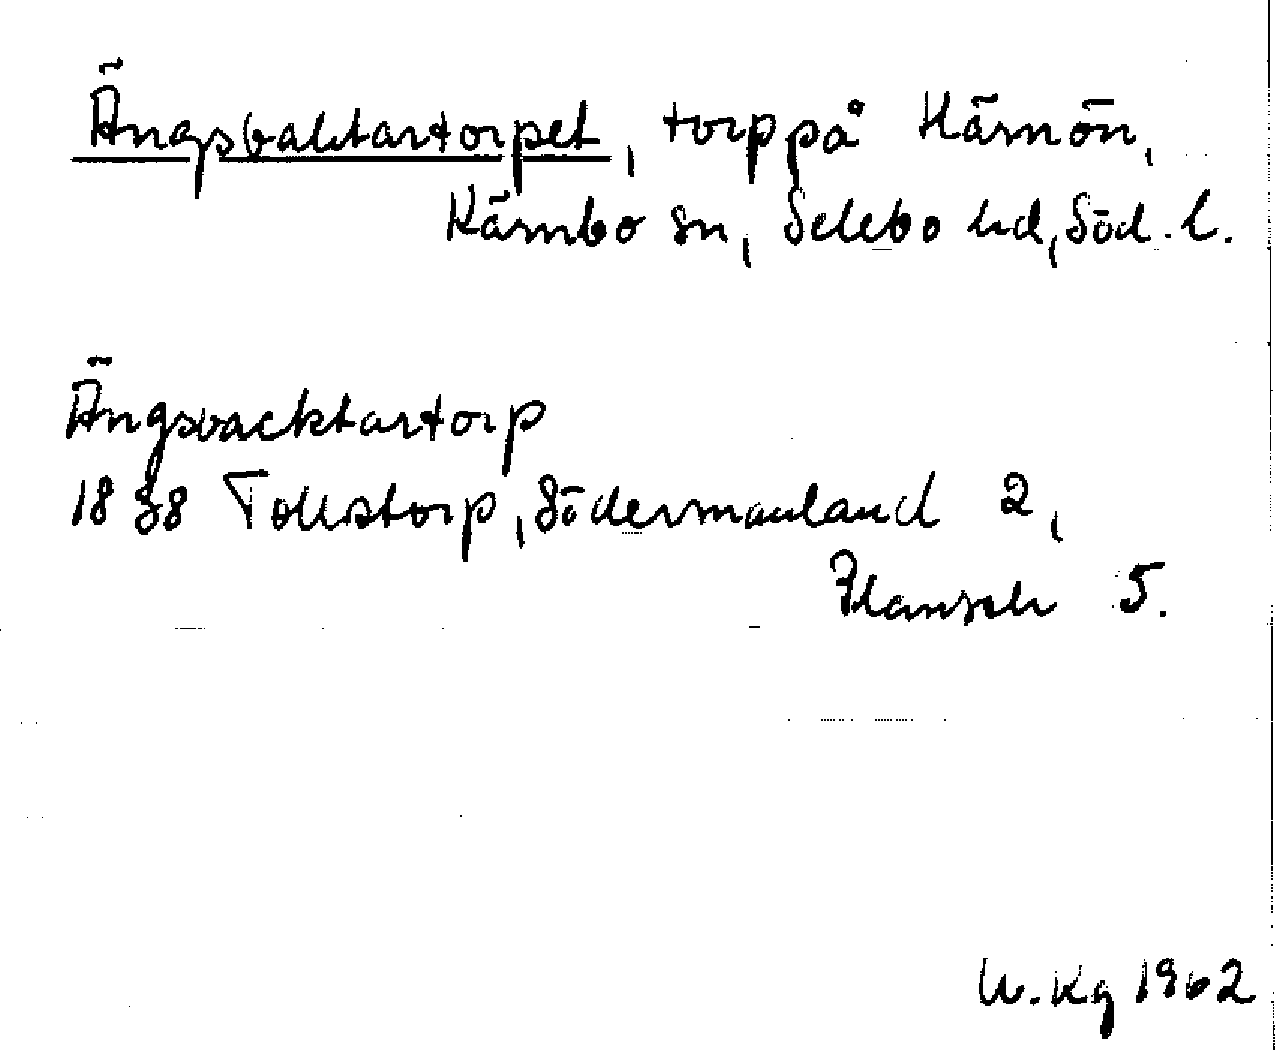 Ängsvaktartorpet, torp på Kärnön,
Kärnbo sn, Selebo hd, Söd. l.
Ängsvacktartorp
1838 Tollstorp, Södermanland 2,
Hansch 5.
W. Kg 1962